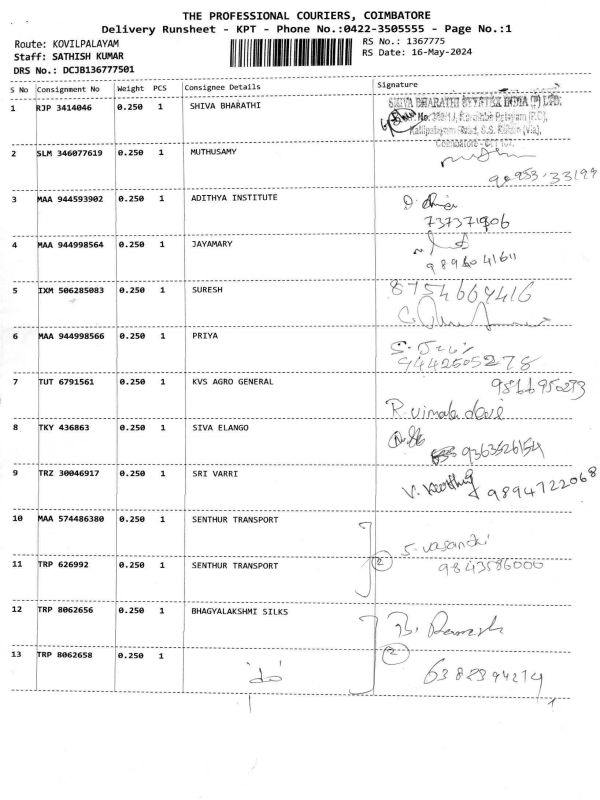 THE PROFESSIONAL COURIERS, COIMBATORE
Delivery Runsheet - KPT - Phone No.:0422-3505555 - Page No.:1
Route: KOVILPALAYAM
RS No.: 1367775
Staff: SATHISH KUMAR
RS Date: 16-May-2024
DRS No.: DCJB136777501
S No Consignment No Weight PCS Consignee Details Signature
1 RJP 3414046 0.250 1 SHIVA BHARATHI
SHIVA BHARATHI INDIA (P) LTD.
2 SLM 346077619 0.250 1 MUTHUSAMY
3 MAA 944593902 0.250 1 ADITHYA INSTITUTE
4 MAA 944998564 0.250 1 JAYAMARY
5 IXM 506285083 0.250 1 SURESH
8754664416
6 MAA 944998566 0.250 1 PRIYA
9442505278
7 TUT 6791561 0.250 1 KVS AGRO GENERAL
R. vimala devi
8 TKY 436863 0.250 1 SIVA ELANGO
9363526154
9 TRZ 30046917 0.250 1 SRI VARRI
9894722068
10 MAA 574486380 0.250 1 SENTHUR TRANSPORT
S. vasanthi
11 TRP 626992 0.250 1 SENTHUR TRANSPORT
2
9843586000
12 TRP 8062656 0.250 1 BHAGYALAKSHMI SILKS
B. Ramesh
13 TRP 8062658 0.250 1
2
6382394214